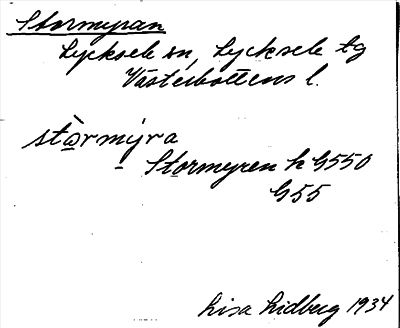 Stormyran
Lycksele sn, Lycksele tg
Västerbottens l.
stò̱rmýra
- Stormyren k G550
G55
Lisa Lidberg 1934